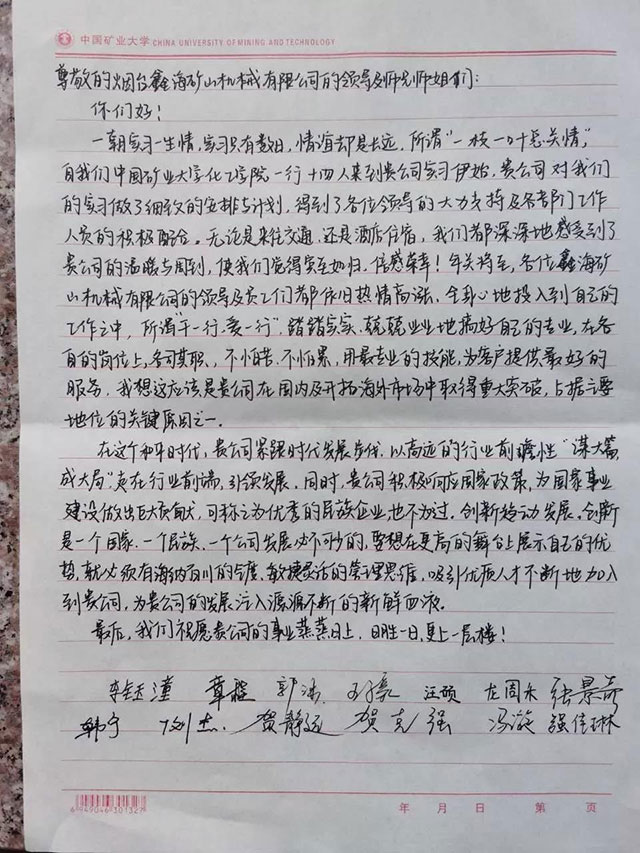 中国矿业大学 CHINA UNIVERSITY OF MINING AND TECHNOLOGY
尊敬的烟台鑫海矿山机械有限公司的领导及师兄师姐们：
你们好！
一朝实习一生情，实习只有数日，情谊却是长远，所谓“一枝一叶总关情”，
自我们中国矿业大学化工学院一行十四人来到贵公司实习伊始，贵公司对我们
的实习做了细致的安排与计划，得到了各位领导的大力支持及各部门工作
人员的积极配合。无论是来往交通，还是酒店住宿，我们都深深地感受到了
贵公司的温暖与周到，使我们觉得宾至如归，倍感荣幸！年关将至，各位鑫海矿
山机械有限公司的领导及员工们都依旧热情高涨，全身心地投入到自己的
工作之中，所谓“干一行，爱一行”，踏踏实实、兢兢业业地搞好自己的专业，在各
自的岗位上，各司其职、不怕苦、不怕累，用最专业的技能，为客户提供最好的
服务。我想这应该是贵公司在国内及开拓海外市场中取得重大突破，占据主要
地位的关键原因之一。
在这个和平时代，贵公司紧跟时代发展步伐，以高远的行业前瞻性“谋大篇，
成大局”走在行业前端，引领发展。同时，贵公司积极响应国家政策，为国家事业
建设做出巨大贡献，可称之为优秀的民族企业也不为过。创新驱动发展，创新
是一个国家、一个民族、一个公司发展必不可少的，要想在更高的舞台上展示自己的优
势，就必须有海纳百川的气度、敏捷灵活的管理思维，吸引优质人才不断地加入
到贵公司，为贵公司的发展注入源源不断的新鲜血液。
最后，我们祝愿贵公司的事业蒸蒸日上，日胜一日，更上一层楼！
李钰潼 章程 郭 汪硕 龙国水 张景奇
韩宁 刘杰 贺静远 贺克强 冯漩 强佳琳
6 949046 301327
年 月 日 第 页